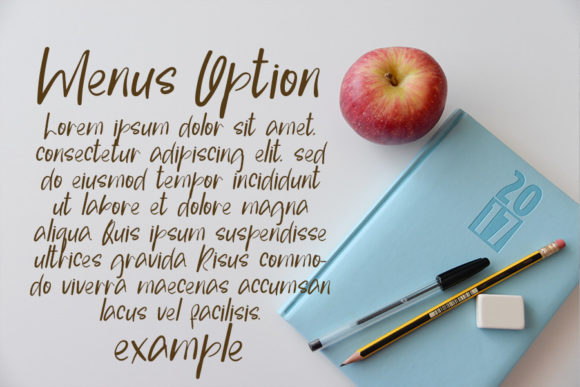 Menus Option
Lorem ipsum dolor sit amet,
consectetur adipiscing elit, sed
do eiusmod tempor incididunt
ut labore et dolore magna
aliqua Quis ipsum suspendisse
ultrices gravida Risus commo-
do viverra maecenas accumsan
lacus vel facilisis.
example
20
17